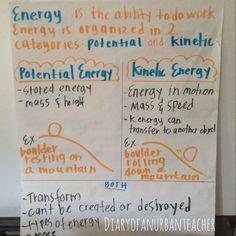 Energy is the ability to do work
Energy is organized in 2
categories. potential and kinetic
Potential Energy
- stored energy
- mass & height
Ex:
boulder
resting on
a mountain
Kinetic Energy
- Energy in motion
- Mass & Speed
- K. energy can
transfer to another object
Ex:
boulder
rolling
down a
mountain
BOTH
- Transform
- can't be created or destroyed
- types of energy
Diaryofanurbanteacher